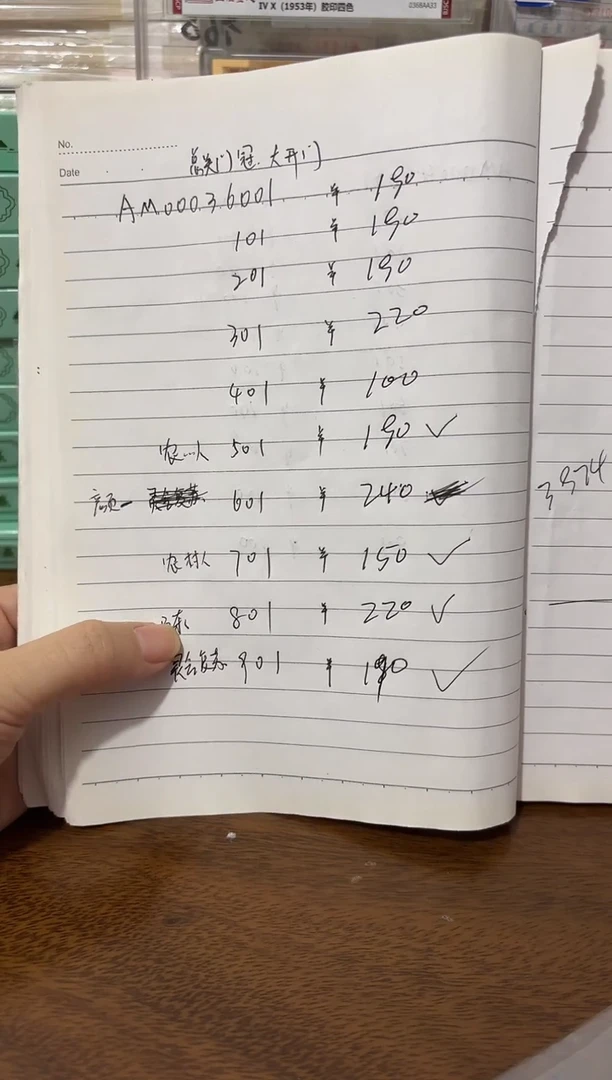 IV X（1953年）胶印四色
0368AA33
No.
Date
总关门冠.大开门
AM00036001 ¥ 190
101 ¥ 190
201 ¥ 190
301 ¥ 220
401 ¥ 100
农...人 501 ¥ 190 ✓
601 ¥ 240
农村人 701 ¥ 150 ✓
东 801 ¥ 220 ✓
901 ¥ 190 ✓
3974